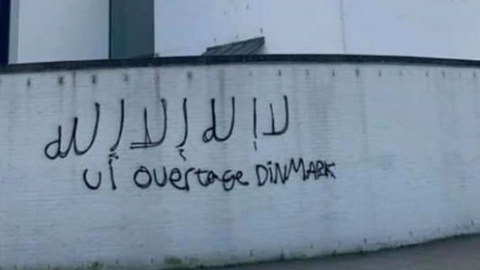 لا إله إلا إلله
Ui overtage DiNMARK